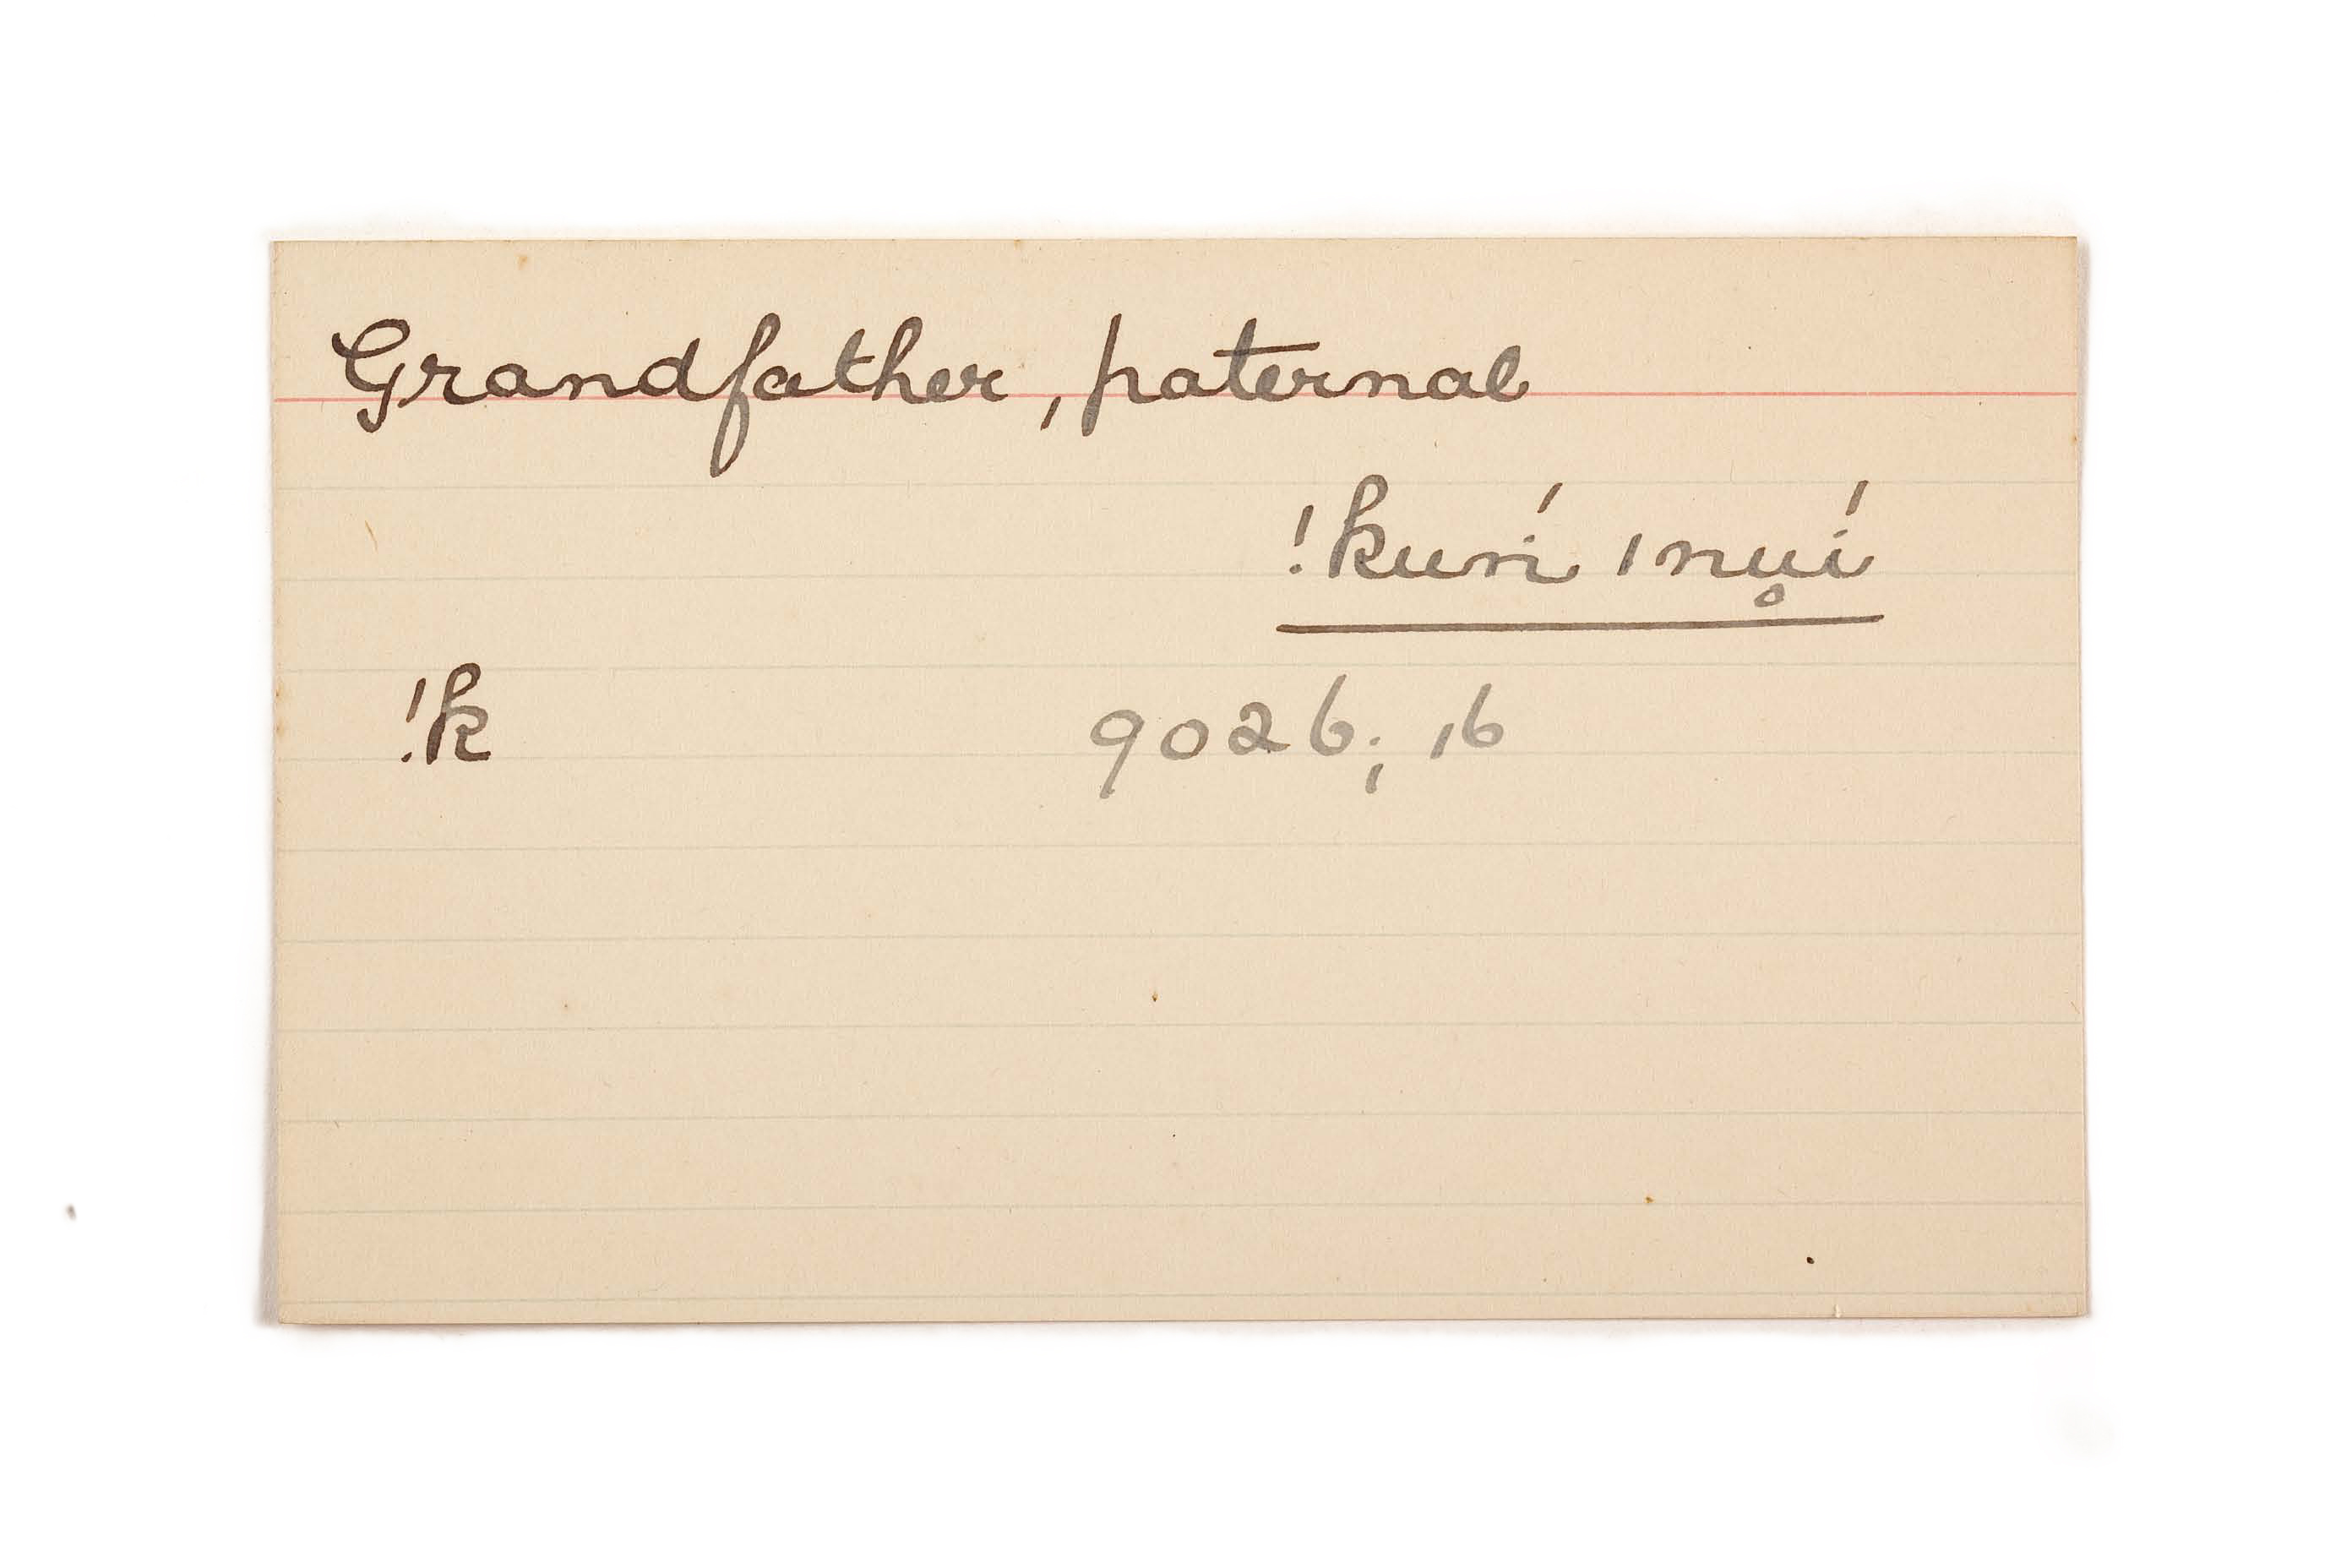 Grandfather, paternal
!kurí ǀnu̥í
!k 9026; 16